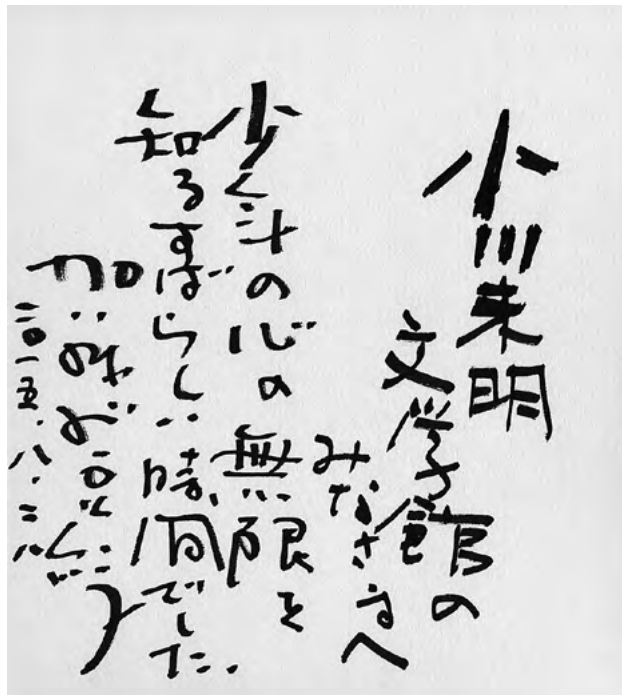 小川未明
文学館の
みなさまへ
少年の心の無限を
知るすばらしい時間でした。
二〇一五.八.二八